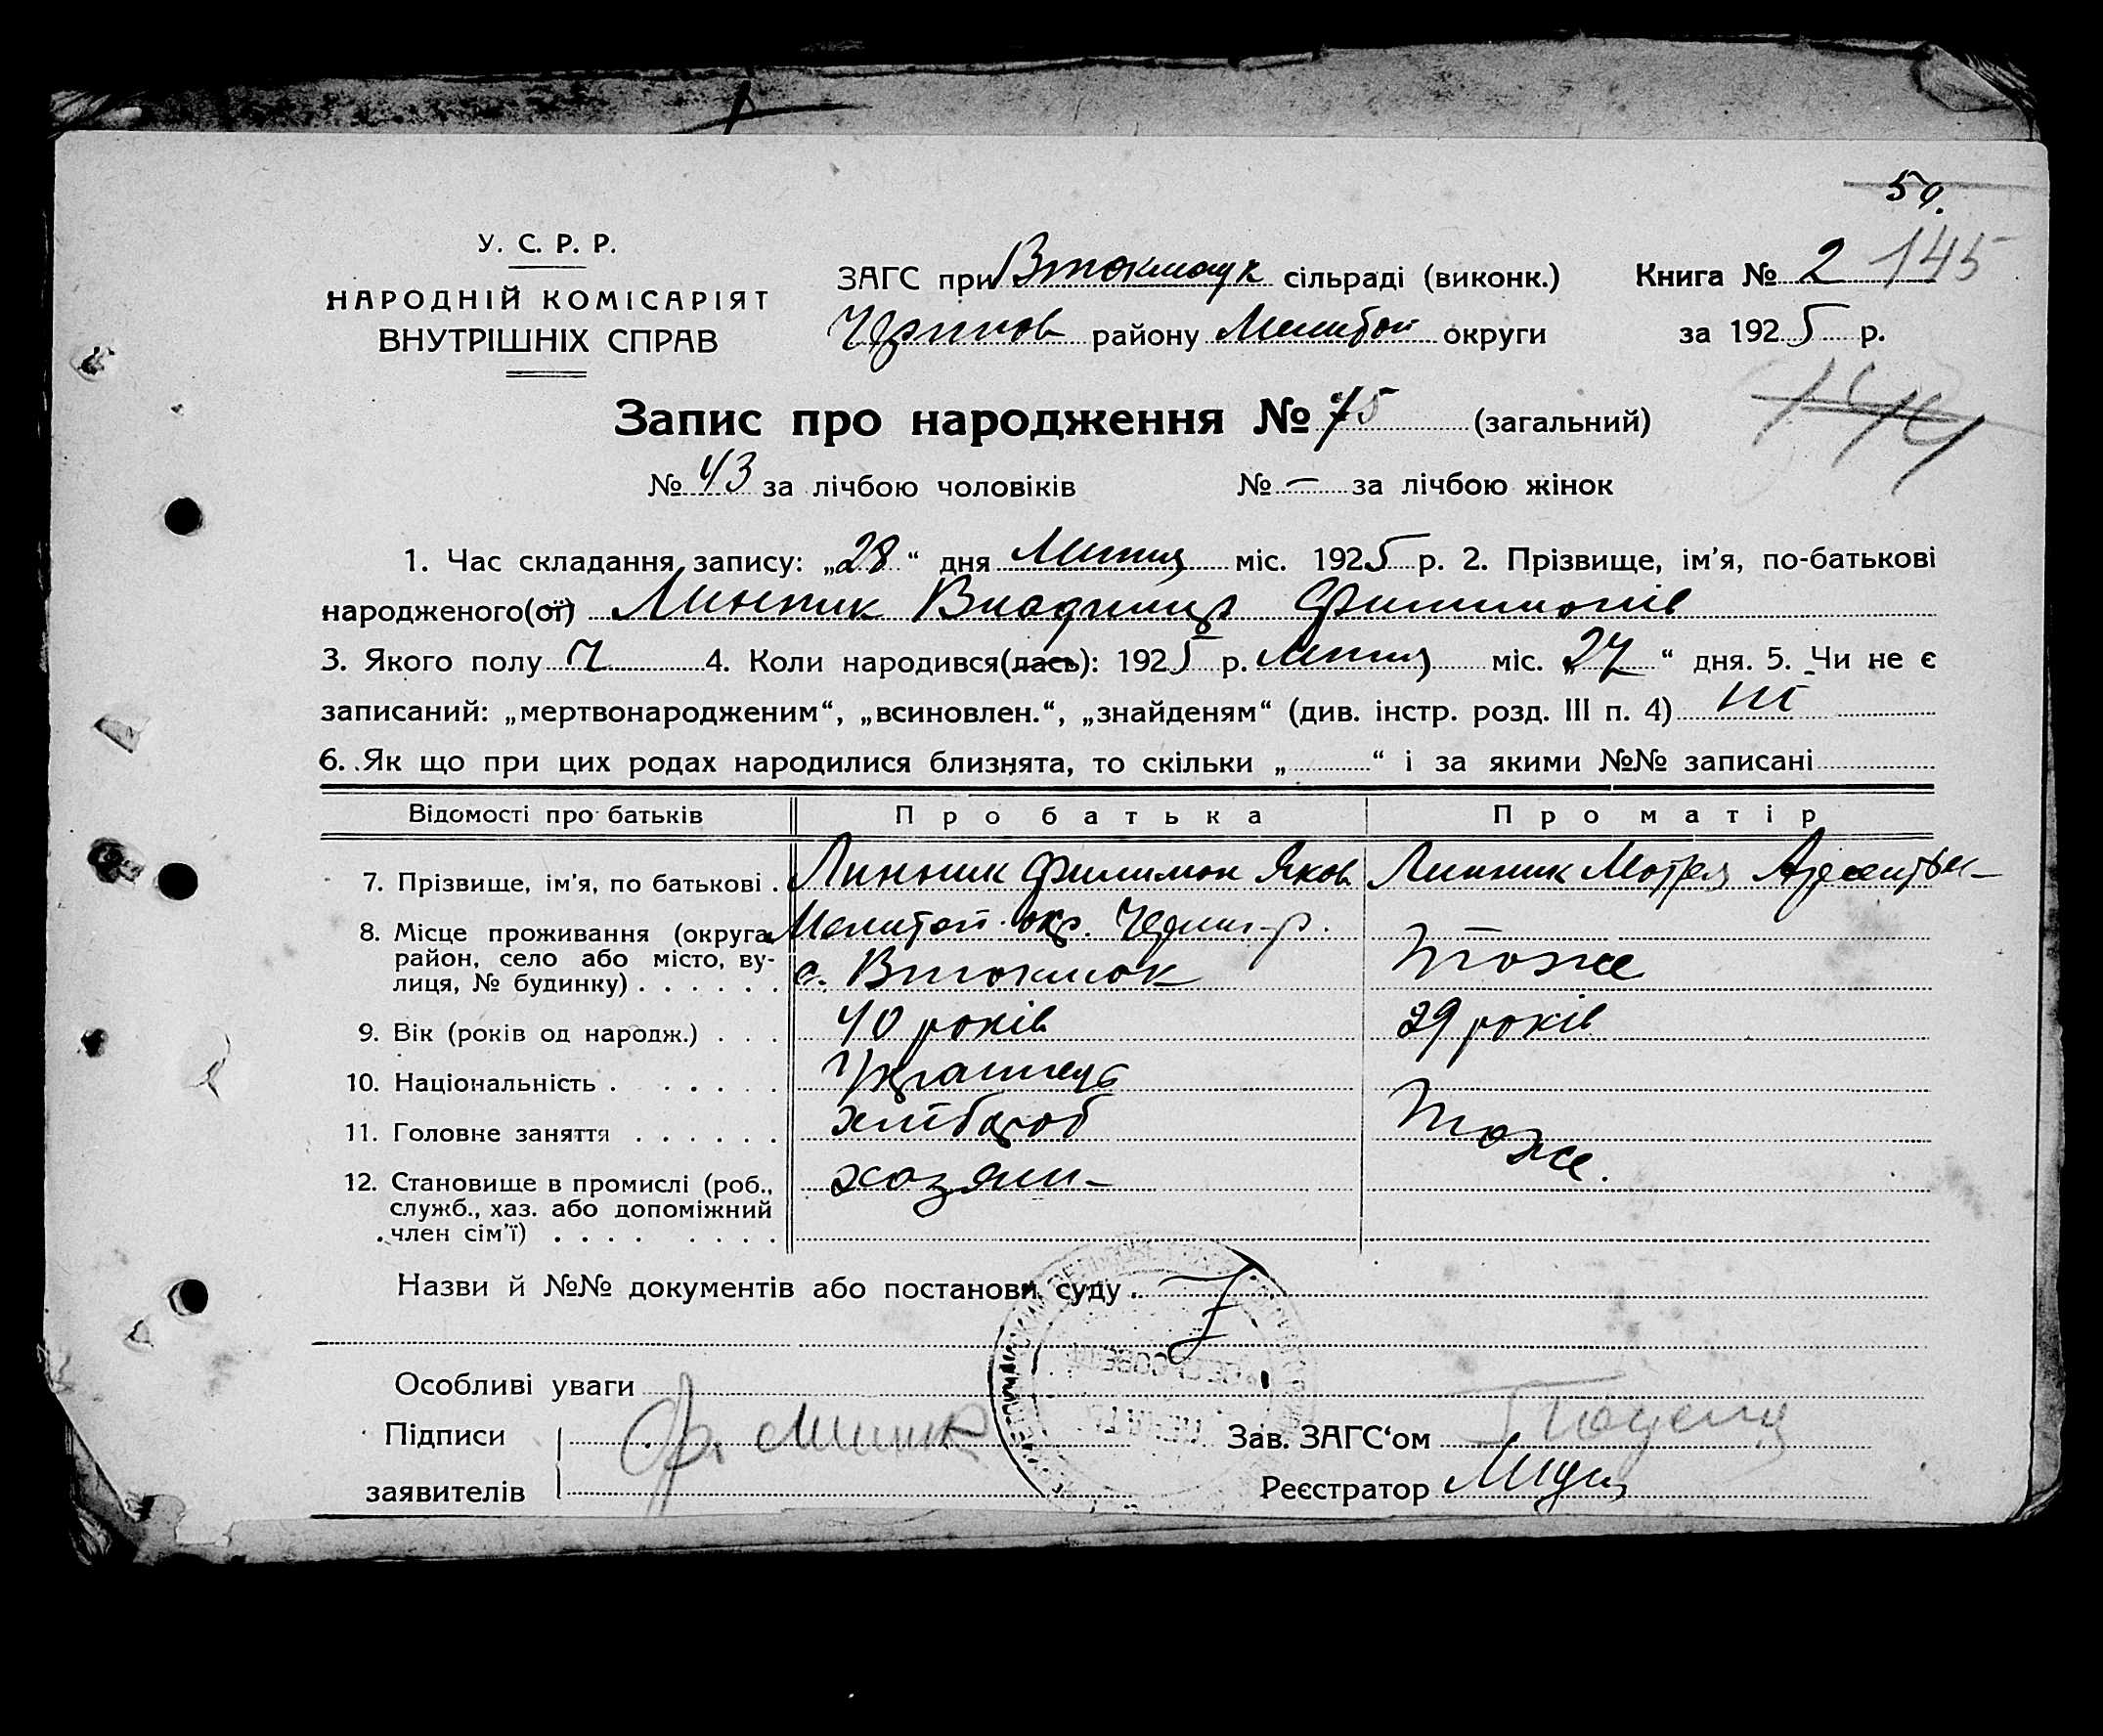 50.
У. С. Р. Р.
НАРОДНІЙ КОМІСАРІЯТ
ВНУТРІШНІХ СПРАВ
ЗАГС при Втокмацк сільраді (виконк.)
район Мелитоп округи
Книга № 2 145
за 1925 р.
Запис про народження № 75 (загальний)
144
№ 43 за лічбою чоловіків № — за лічбою жінок
1. Час складання запису: „28“ дня Липня міс. 1925 р. 2. Прізвище, ім'я, по-батькові
народженого(ої) Линник Владимир Филимонів
3. Якого полу ч 4. Коли народився(лась): 1925 р. липня міс. „27“ дня. 5. Чи не є
записаний: „мертвонародженим“, „всиновлен.“, „знайденям“ (див. інстр. розд. III п. 4) ні
6. Як що при цих родах народилися близнята, то скільки „ “ і за якими №№ записані
Відомості про батьків Про батька Про матір
7. Прізвище, ім'я, по батькові . Линник Филимон Яков Линник Мотря
8. Місце проживання (округа, район, село або місто, ву-
лиця, № будинку) . . . . . . Мелитоп. окр. Черниг. р.
с. Втокмак тоже
9. Вік (років од народж.) . . . 40 років 29 років
10. Національність . . . . . . Украинець
11. Головне заняття . . . . . . хлібороб тоже.
12. Становище в промислі (роб.,
служб., хаз. або допоміжний
член сім'ї) . . . . . . . . хозяин
Назви й №№ документів або постанови суду
Особливі уваги
Підписи
заявителів Ф. Линник
Зав. ЗАГС'ом
Реєстратор